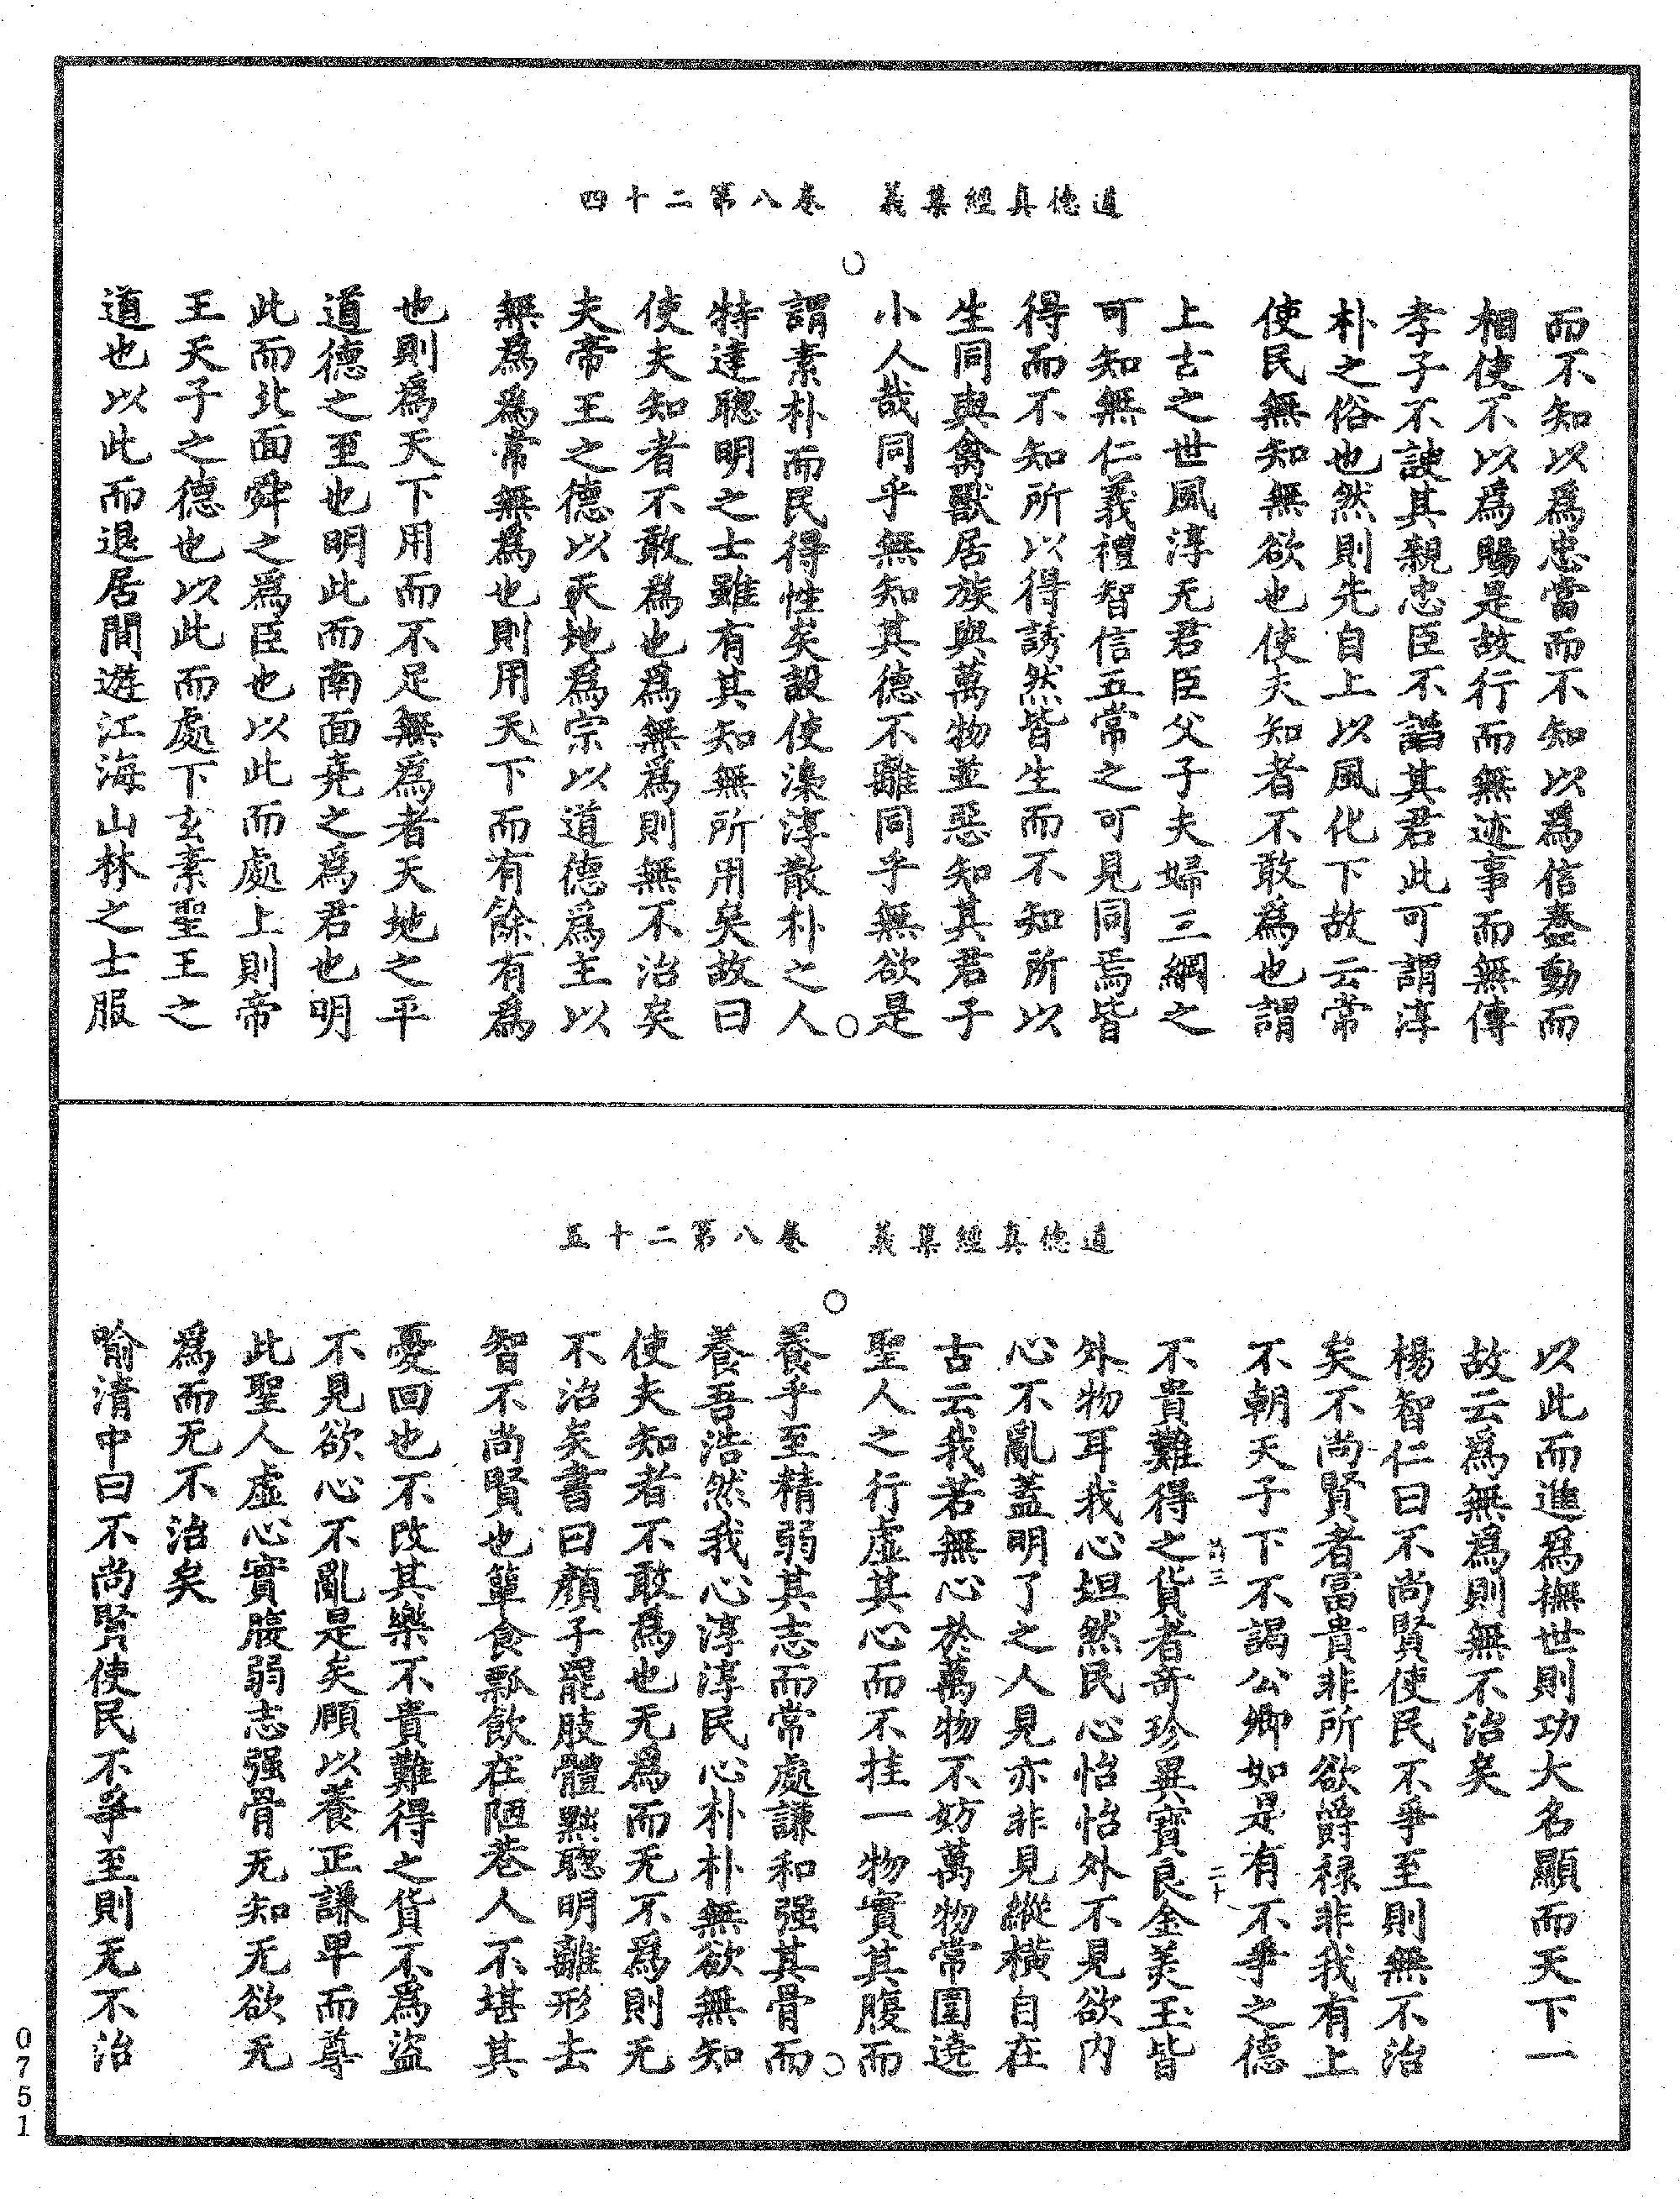 道德真經集義 卷八第二十四
而不知以爲忠當而不知以爲信蠢動而
相使不以爲賜是故行而無迹事而無傳
孝子不諛其親忠臣不諂其君此可謂淳
朴之俗也然則先自上以風化下故云常
使民無知無欲也使夫知者不敢爲也謂
上古之世風淳无君臣父子夫婦三綱之
可知無仁義禮智信五常之可見同焉皆
得而不知所以得誘然皆生而不知所以
生同與禽獸居族與萬物並惡知其君子
小人哉同乎無知其德不離同乎無欲是
謂素朴而民得性矣設使澆淳散朴之人
特達聰明之士雖有其知無所用矣故曰
使夫知者不敢爲也爲無爲則無不治矣
夫帝王之德以天地爲宗以道德爲主以
無爲爲常無爲也則用天下而有餘有爲
也則爲天下用而不足無爲者天地之平
道德之至也明此而南面堯之爲君也明
此而北面舜之爲臣也以此而處上則帝
王天子之德也以此而處下玄素聖王之
道也以此而退居間遊江海山林之士服
道德真經集義 卷八第二十五
以此而進爲撫世則功大名顯而天下一
故云爲無爲則無不治矣
楊智仁曰不尚賢使民不爭至則無不治
矣不尚賢者富貴非所欲爵祿非我有上
不朝天子下不謁公卿如是有不爭之德
不貴難得之貨者奇珍異寶良金美玉皆
外物耳我心坦然民心怡怡外不見欲内
心不亂蓋明了之人見亦非見縱橫自在
古云我若無心於萬物不妨萬物常圍遶
聖人之行虛其心而不挂一物實其腹而
養乎至精弱其志而常處謙和强其骨而
養吾浩然我心淳淳民心朴朴無欲無知
使夫知者不敢爲也无爲而无不爲則无
不治矣書曰顏子罷肢體黜聰明離形去
智不尚賢也簞食瓢飲在陋巷人不堪其
憂回也不改其樂不貴難得之貨不爲盜
不見欲心不亂是矣頤以養正謙卑而尊
此聖人虛心實腹弱志强骨无知无欲无
爲而无不治矣
喻清中曰不尚賢使民不爭至則无不治
三
二十
0751